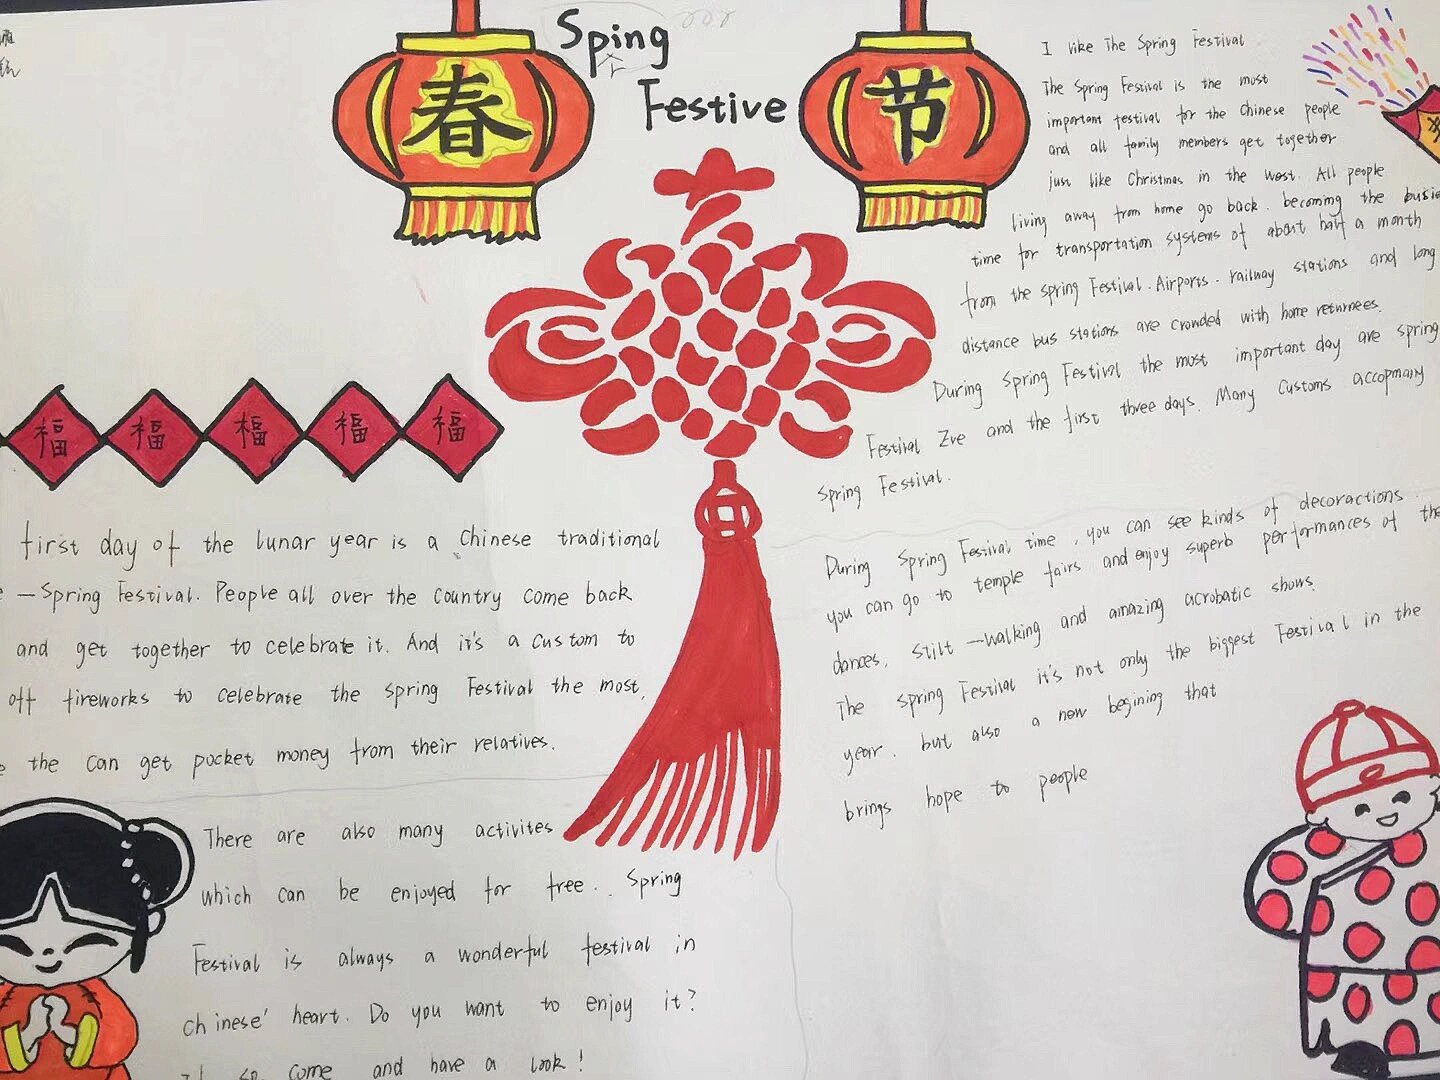 Sping
Festive
春
节
福 福 福 福 福
I like The Spring Festival
The Spring Festival is the most
important festival for the Chinese people
and all family members get together
just like Christmas in the west. All people
living away from home go back. becoming the busie
time for transportation systems of about half a month
from the spring Festival. Airports. railway stations and long
distance bus stations are crowded with home returnees.
During Spring Festival the most important day are spring
Festival Zve and the first three days. Many Customs accopmany
Spring Festival.
During Spring Festival time, you can see kinds of decoractions.
you can go to temple fairs and enjoy superb performances of the
dances. stilt-walking and amazing acrobatic shows.
The spring Festival it's not only the biggest Festival in the
year. but also a new begining that
brings hope to people
first day of the lunar year is a Chinese traditional
—Spring Festival. People all over the country come back
and get together to celebrate it. And it's a custom to
off fireworks to celebrate the spring Festival the most,
the can get pocket money from their relatives.
There are also many activites
which can be enjoyed for free.. Spring
Festival is always a wonderful festival in
chinese' heart. Do you want to enjoy it?
so come and have a look!